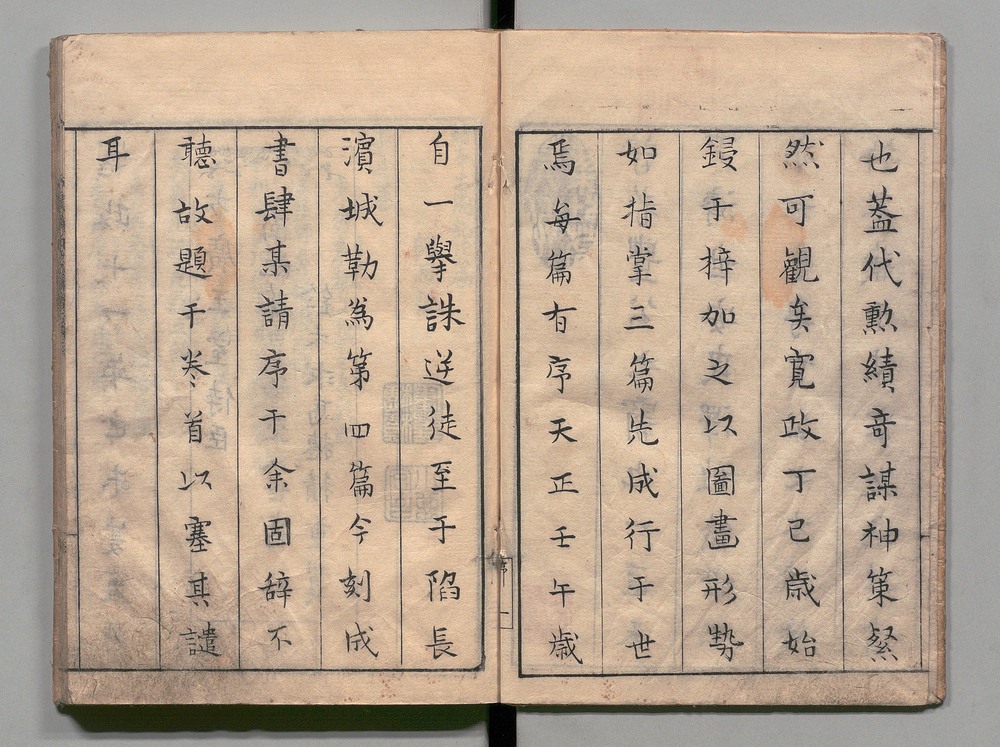 也蓋代勲績奇謀神策粲
然可観矣寛政丁巳歳始
鋟于梓加之以圖畫形勢
如指掌三篇先成行于世
焉毎篇有序天正壬午歳
自一擧誅逆徒至于陷長
濵城勒為第四篇今刻成
書肆某請序于余固辞不
聴故題于巻首以塞其譴
耳